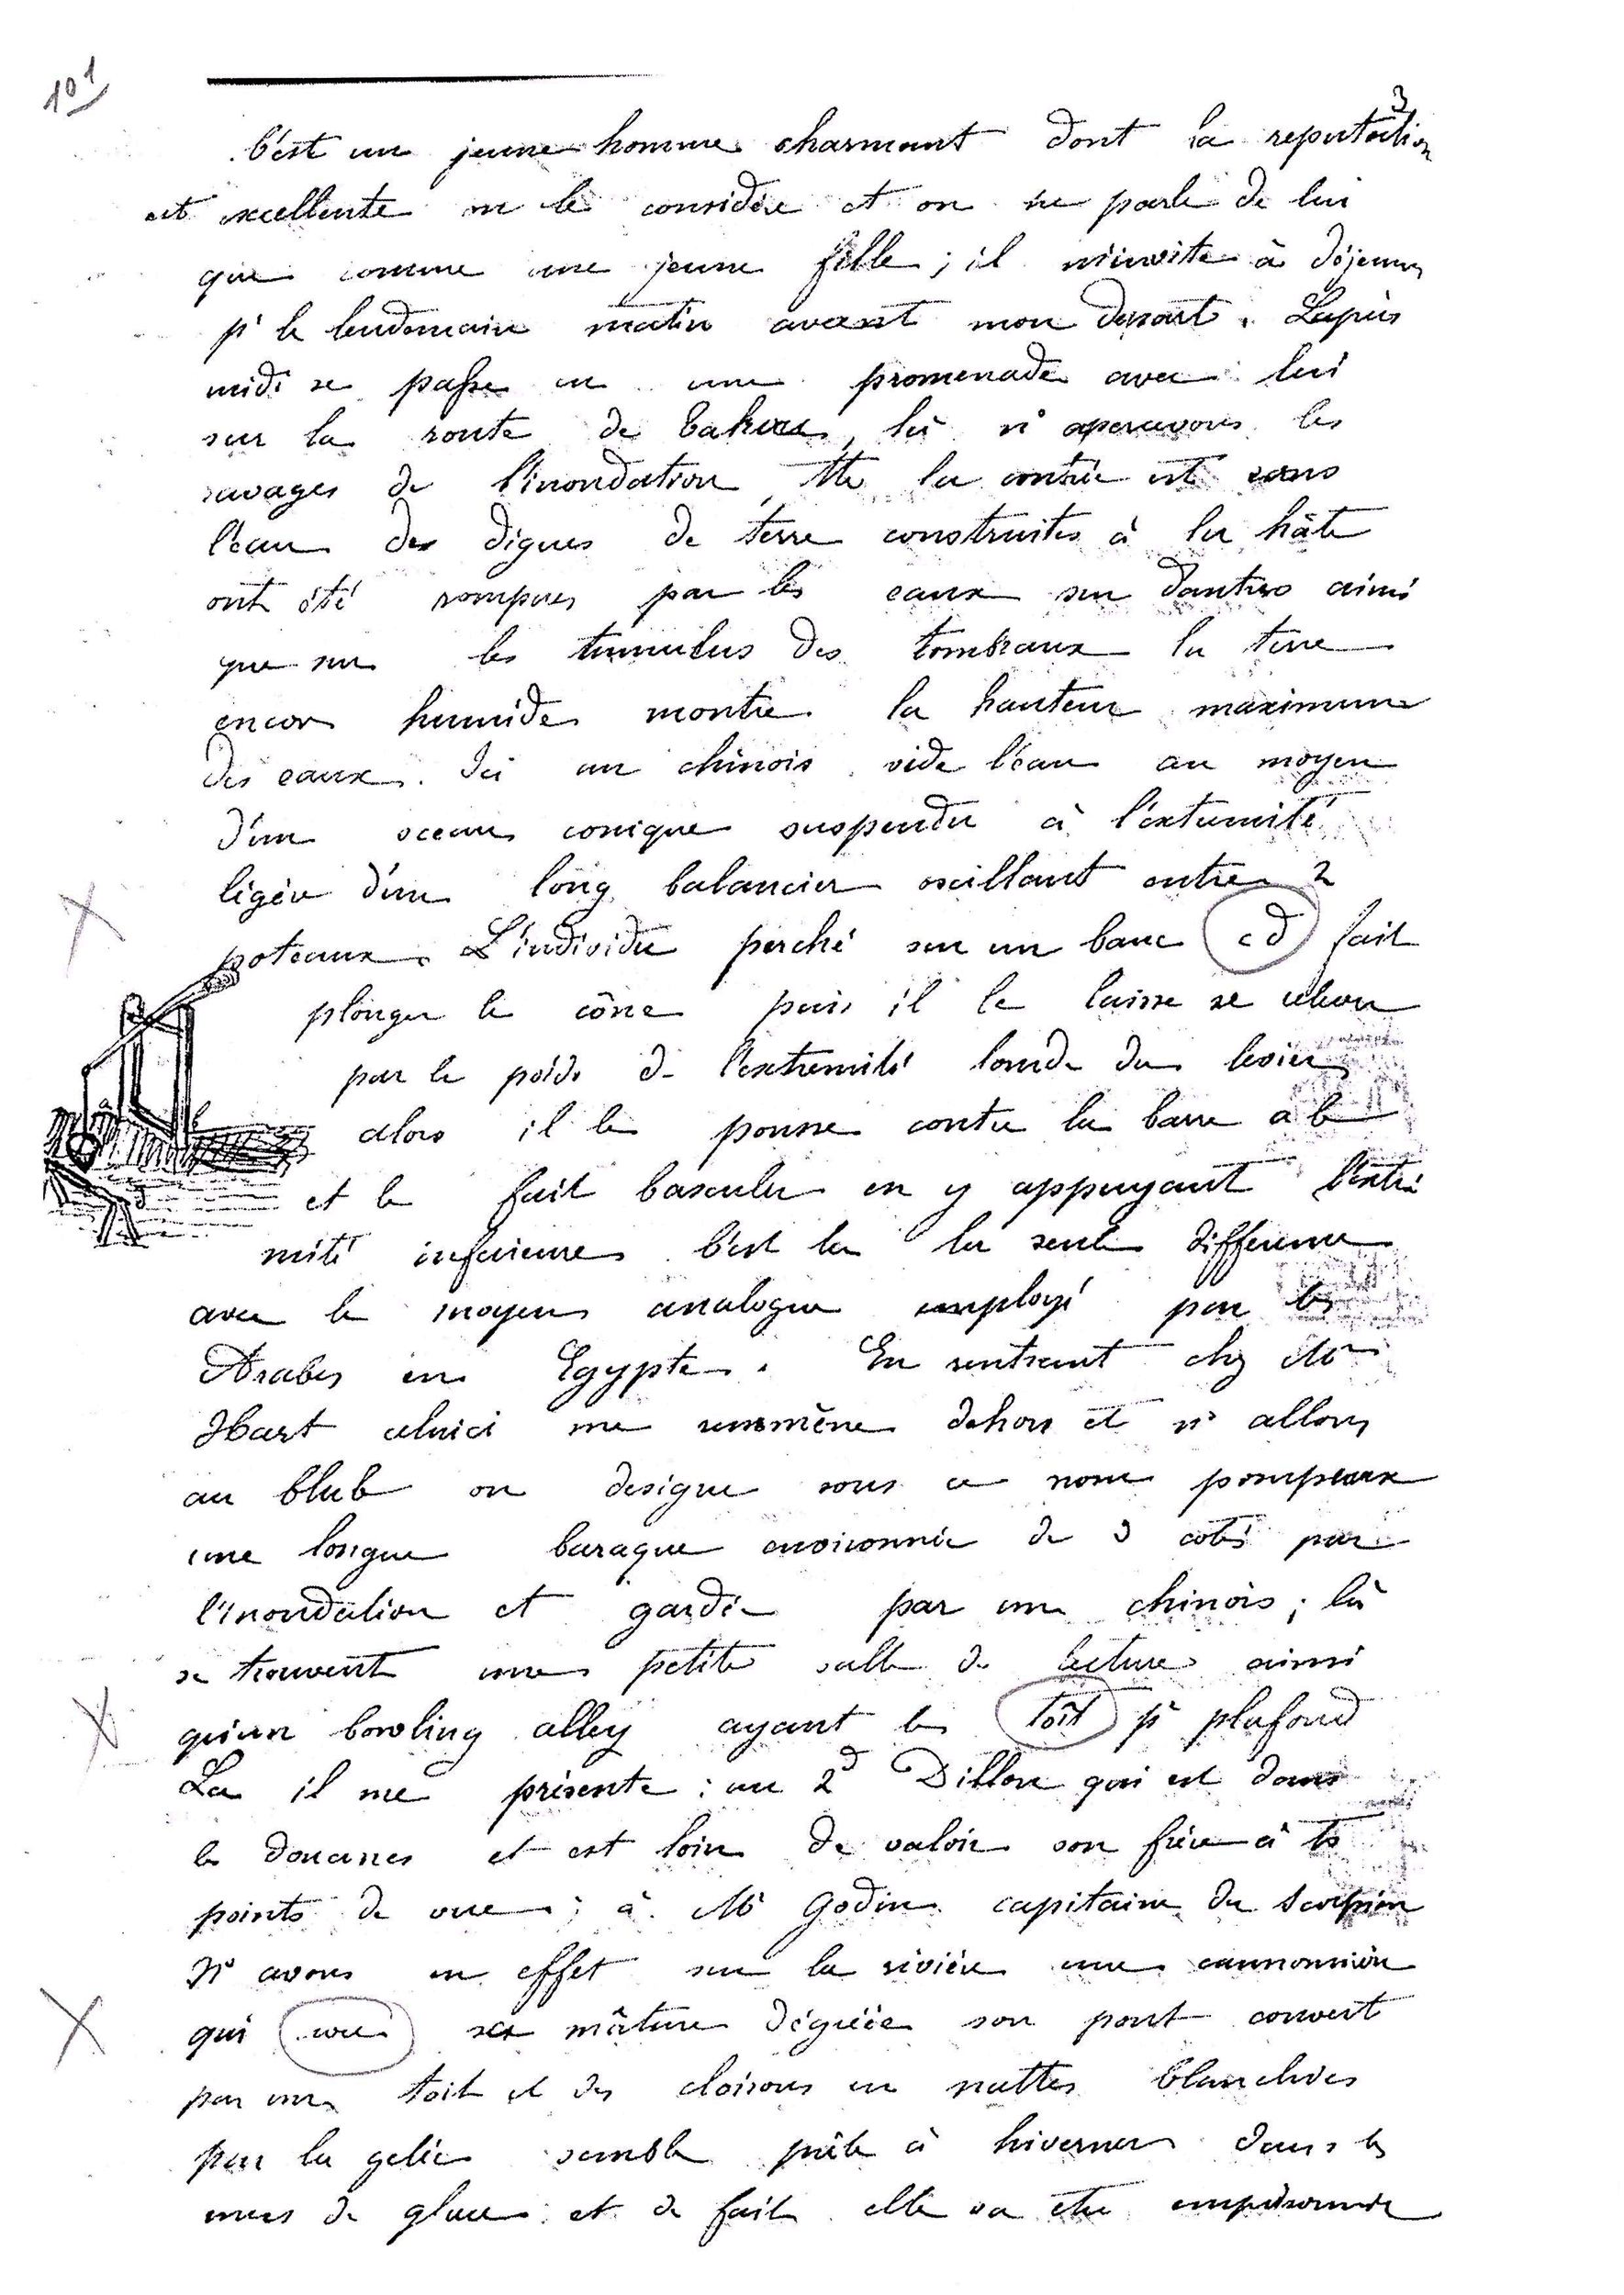 101
3
C'est un jeune homme charmant dont la reputation
est excellente on le considère et on ne parle de lui
que comme une jeune fille ; il m'invite à déjeuner
pr le lendemain matin avant mon depart. L'après
midi se passe en une promenade avec lui
sur la route de Takou, là ns apercevons les
ravages de l'inondation, tte la contrée est sous
l'eau des digues de terre construites à la hâte
ont été rompues par les eaux sur d'autres ainsi
que sur les tumulus des tombeaux la terre
encor humide montre la hauteur maximum
des eaux. Ici un chinois vide l'eau au moyen
d'un sceau conique suspendu à l'extremité
légère d'un long balancier oscillant entre 2
poteaux. L'individu perché sur un banc cd fait
plonger le cône puis il le laisse se relever
par le poids de l'extremité lourde du levier
alors il le pousse contre la barre a b
et le fait basculer en y appuyant l'extré
mité inferieure c'est la la seule difference
avec le moyen analogue employé par les
Arabes en Egypte. En rentrant chez Mr
Hart celui ci me remmène dehors et ns allons
au Club on designe sous ce nom pompeux
une longue baraque environnée de 3 cotés par
l'inondation et gardée par un chinois ; là
se trouvent une petite salle de lecture ainsi
qu'un bowling alley ayant le toît pr plafond
La il me présente : au 2d Dillon qui est dans
les douanes et est loin de valoir son frère à ts
points de vue ; à Mr Godin capitaine du Scorpion
Ns avons en effet sur la rivière une cannonière
qui sa mâture dégréée son pont couvert
par un toit et des cloisons en nattes blanchies
par la gelée semble prête à hiverner dans les
mers de glace et de fait elle va etre emprisonnée